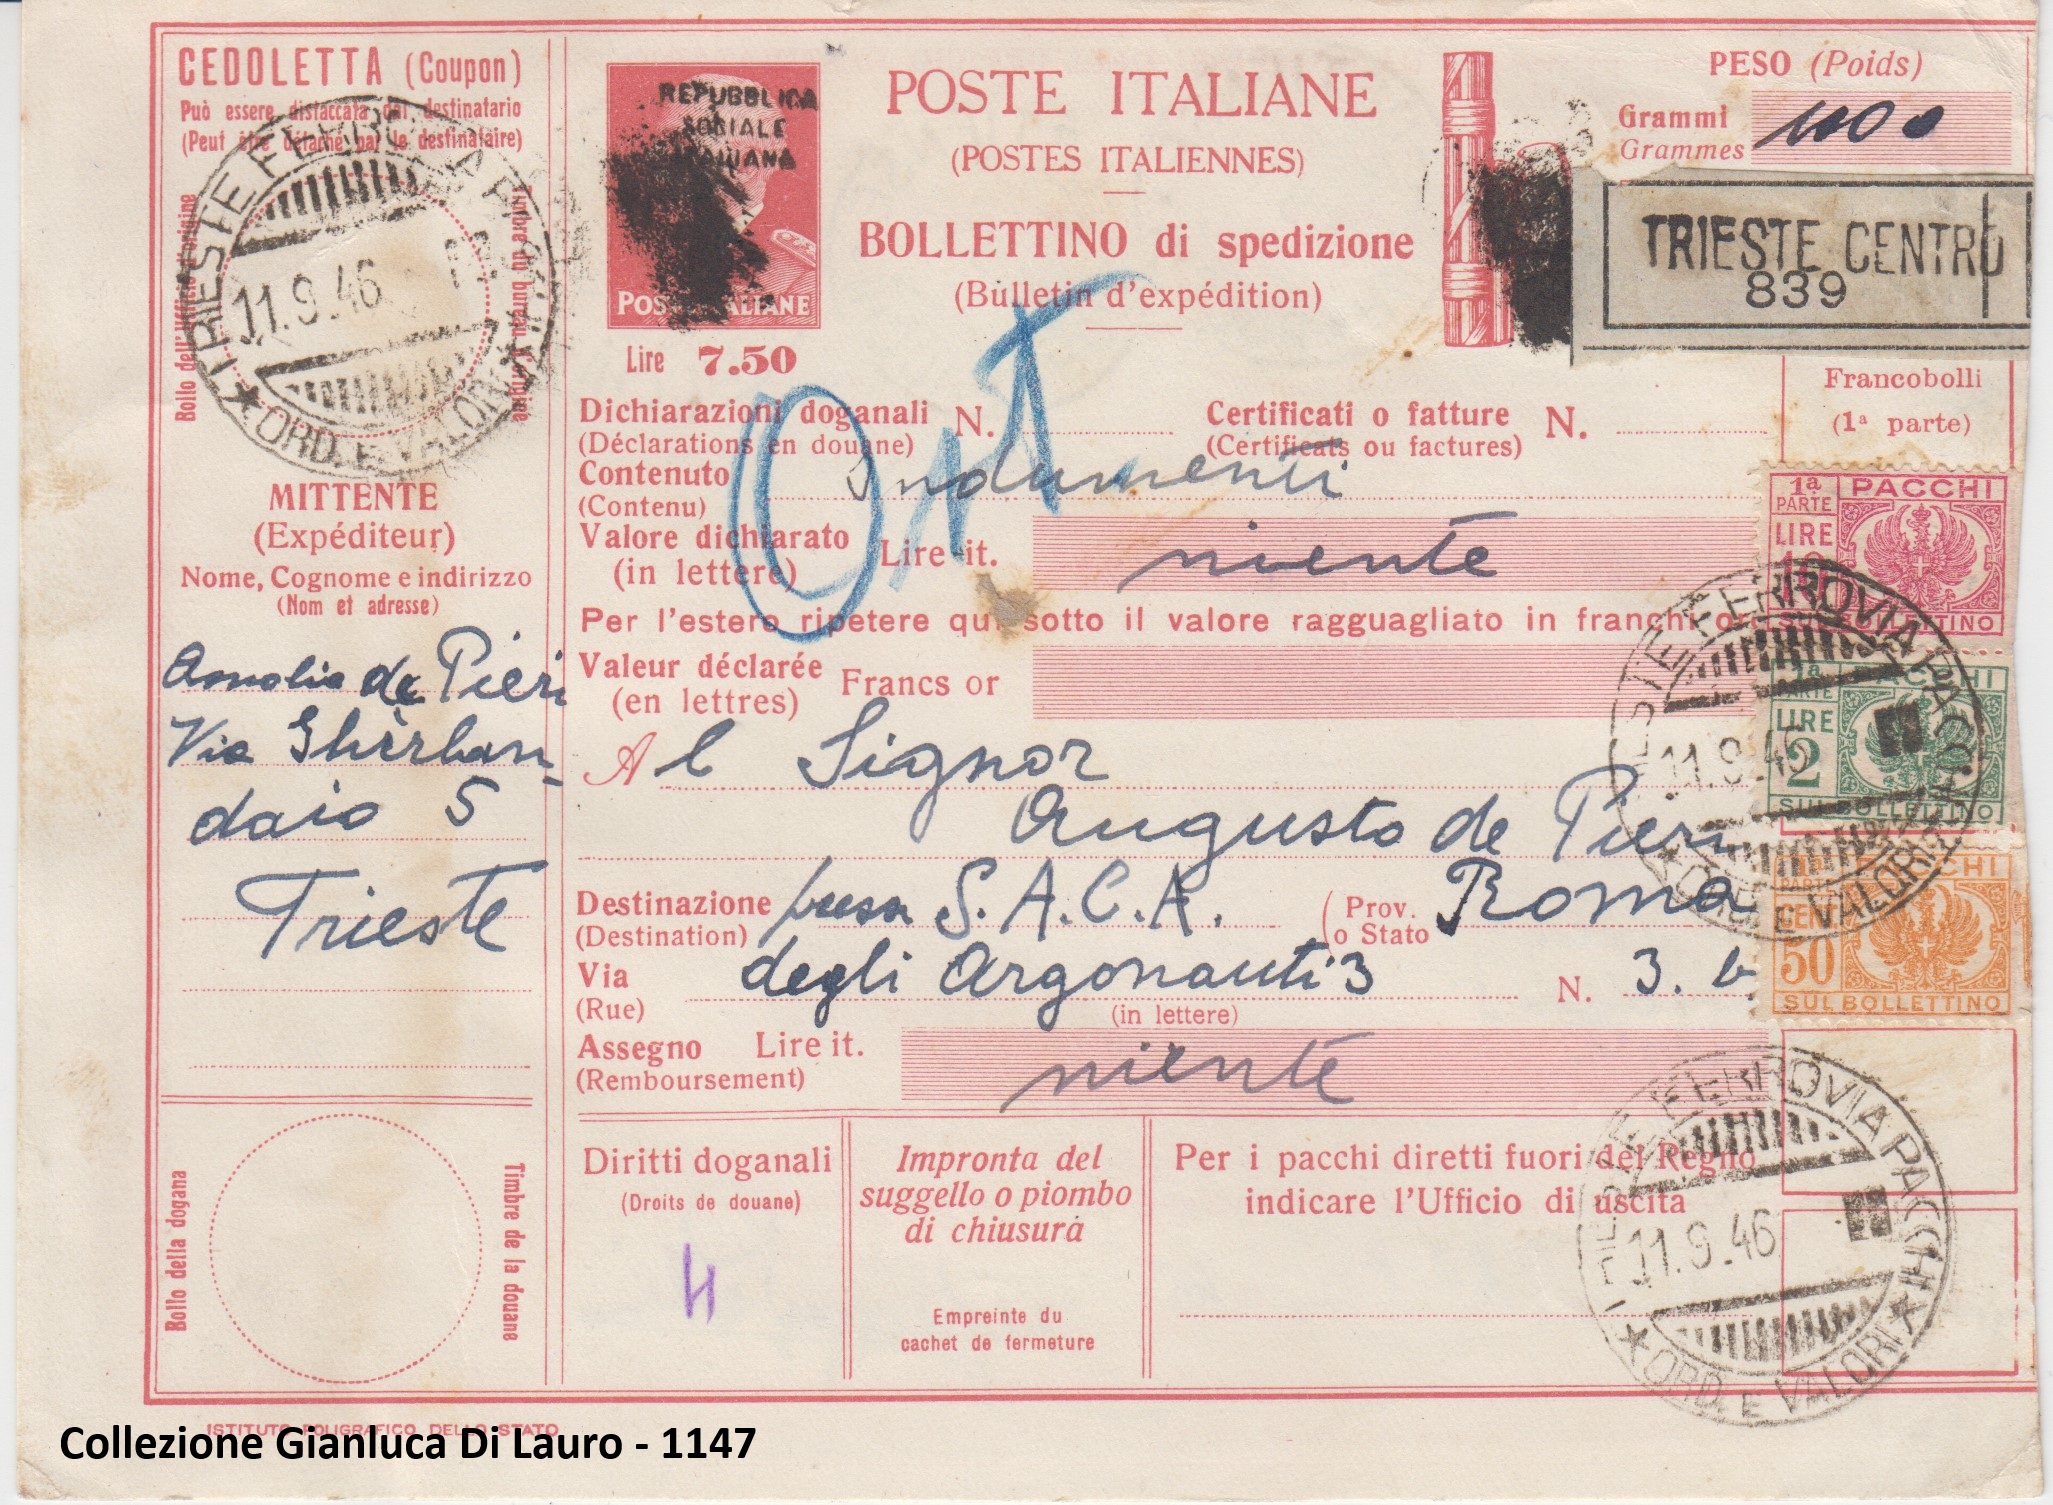 CEDOLETTA (Coupon)
Può essere distaccata dal destinatario
(Peut être détaché par le destinataire)
Bollo dell'Ufficio d'origine
Timbre du bureau d'origine
TRIESTE FERROVIA PACCHI
11.9.46
★ ORD. E VALORI ★
MITTENTE
(Expéditeur)
Nome, Cognome e indirizzo
(Nom et adresse)
de Pieri
Via Ghirlan-
daio 5
Trieste
Bollo della dogana
Timbre de la douane
REPUBBLICA
SOCIALE
ITALIANA
POSTE ITALIANE
Lire 7.50
POSTE ITALIANE
(POSTES ITALIENNES)
BOLLETTINO di spedizione
(Bulletin d'expédition)
PESO (Poids)
Grammi
Grammes
TRIESTE CENTRO
839
Dichiarazioni doganali N.
(Déclarations en douane)
Certificati o fatture N.
(Certificats ou factures)
Contenuto Indumenti
(Contenu)
Valore dichiarato Lire it. niente
(in lettere)
Per l'estero ripetere qui sotto il valore ragguagliato in franchi oro
Valeur déclarée Francs or
(en lettres)
Al Signor
Augusto de Pieri
Destinazione presso S.A.C.A. (Prov. Roma
(Destination) o Stato
Via degli Argonauti 3 N. 3. b
(Rue)
(in lettere)
Assegno Lire it. niente
(Remboursement)
Diritti doganali
(Droits de douane)
Impronta del
suggello o piombo
di chiusura
Empreinte du
cachet de fermeture
Per i pacchi diretti fuori del Regno
indicare l'Ufficio di uscita
Francobolli
(1ª parte)
1ª PARTE PACCHI
LIRE
10
SUL BOLLETTINO
1ª PARTE PACCHI
LIRE
2
SUL BOLLETTINO
PARTE PACCHI
CENT
50
SUL BOLLETTINO
TRIESTE FERROVIA PACCHI
11.9.46
★ ORD. E VALORI ★
TRIESTE FERROVIA PACCHI
11.9.46
★ ORD. E VALORI ★
ISTITUTO POLIGRAFICO DELLO STATO
Collezione Gianluca Di Lauro - 1147